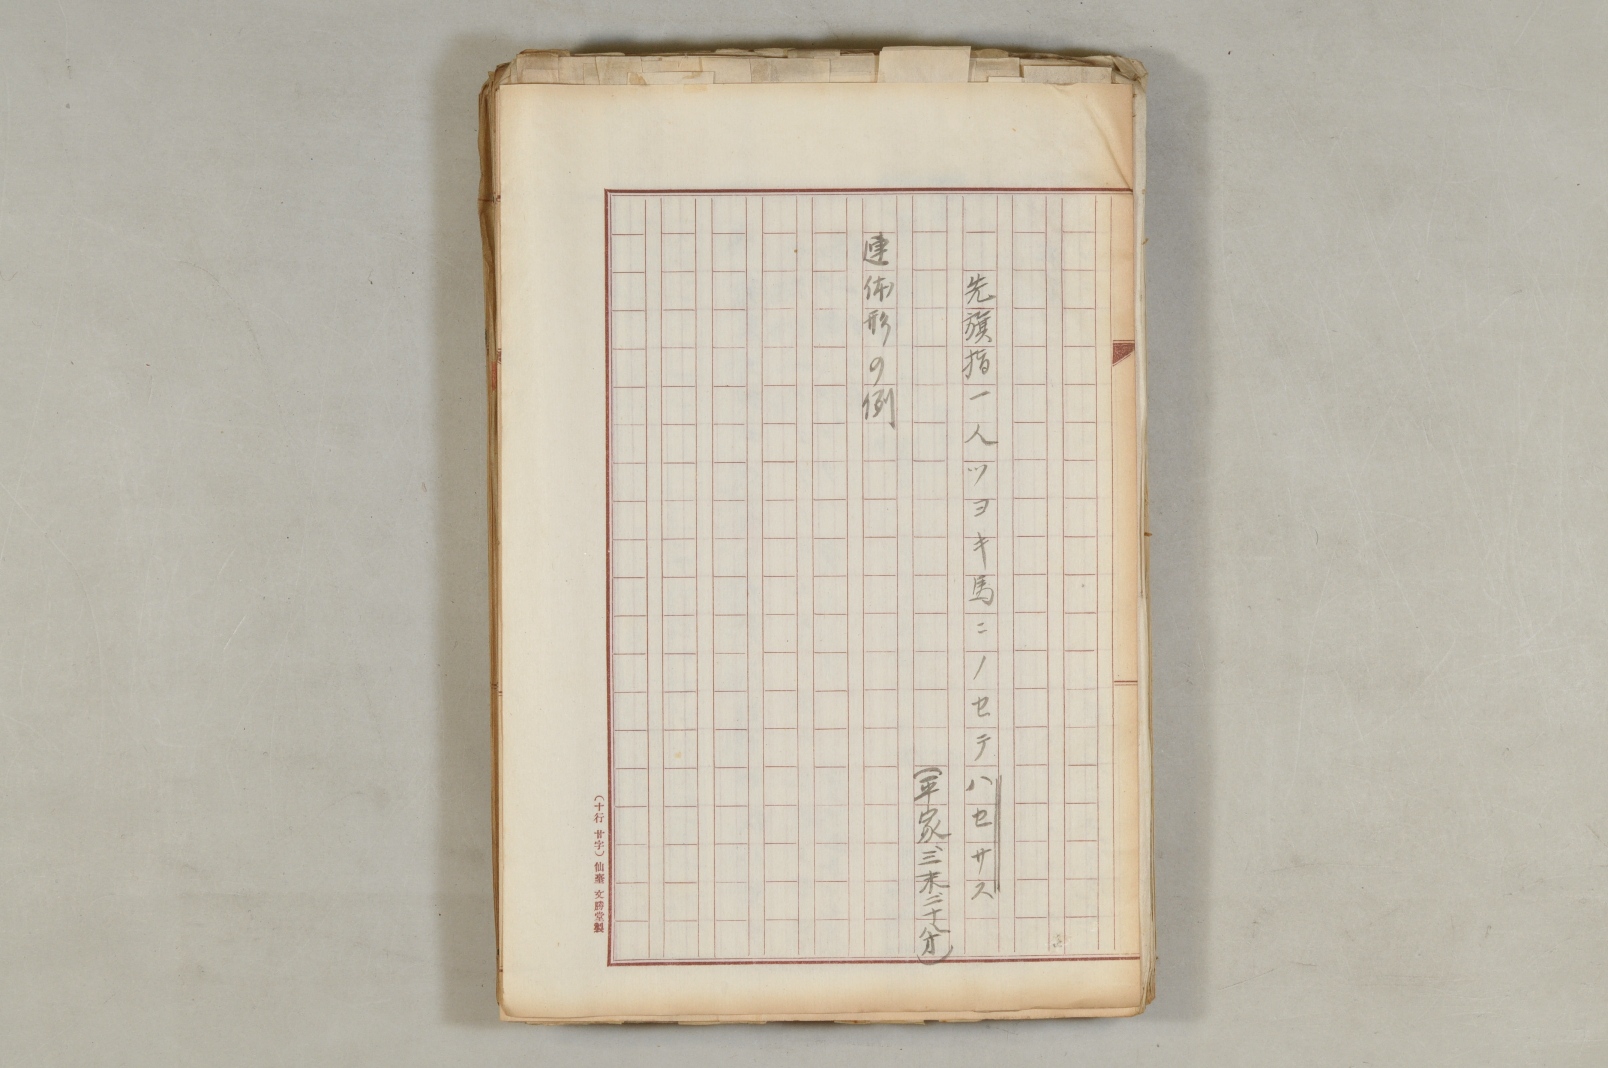 先旗指一人ツヨキ馬ニノセテハセサス
(平家、三末、二十八オ)
連体形の例
(十行 廿字)仙臺 文勝堂製